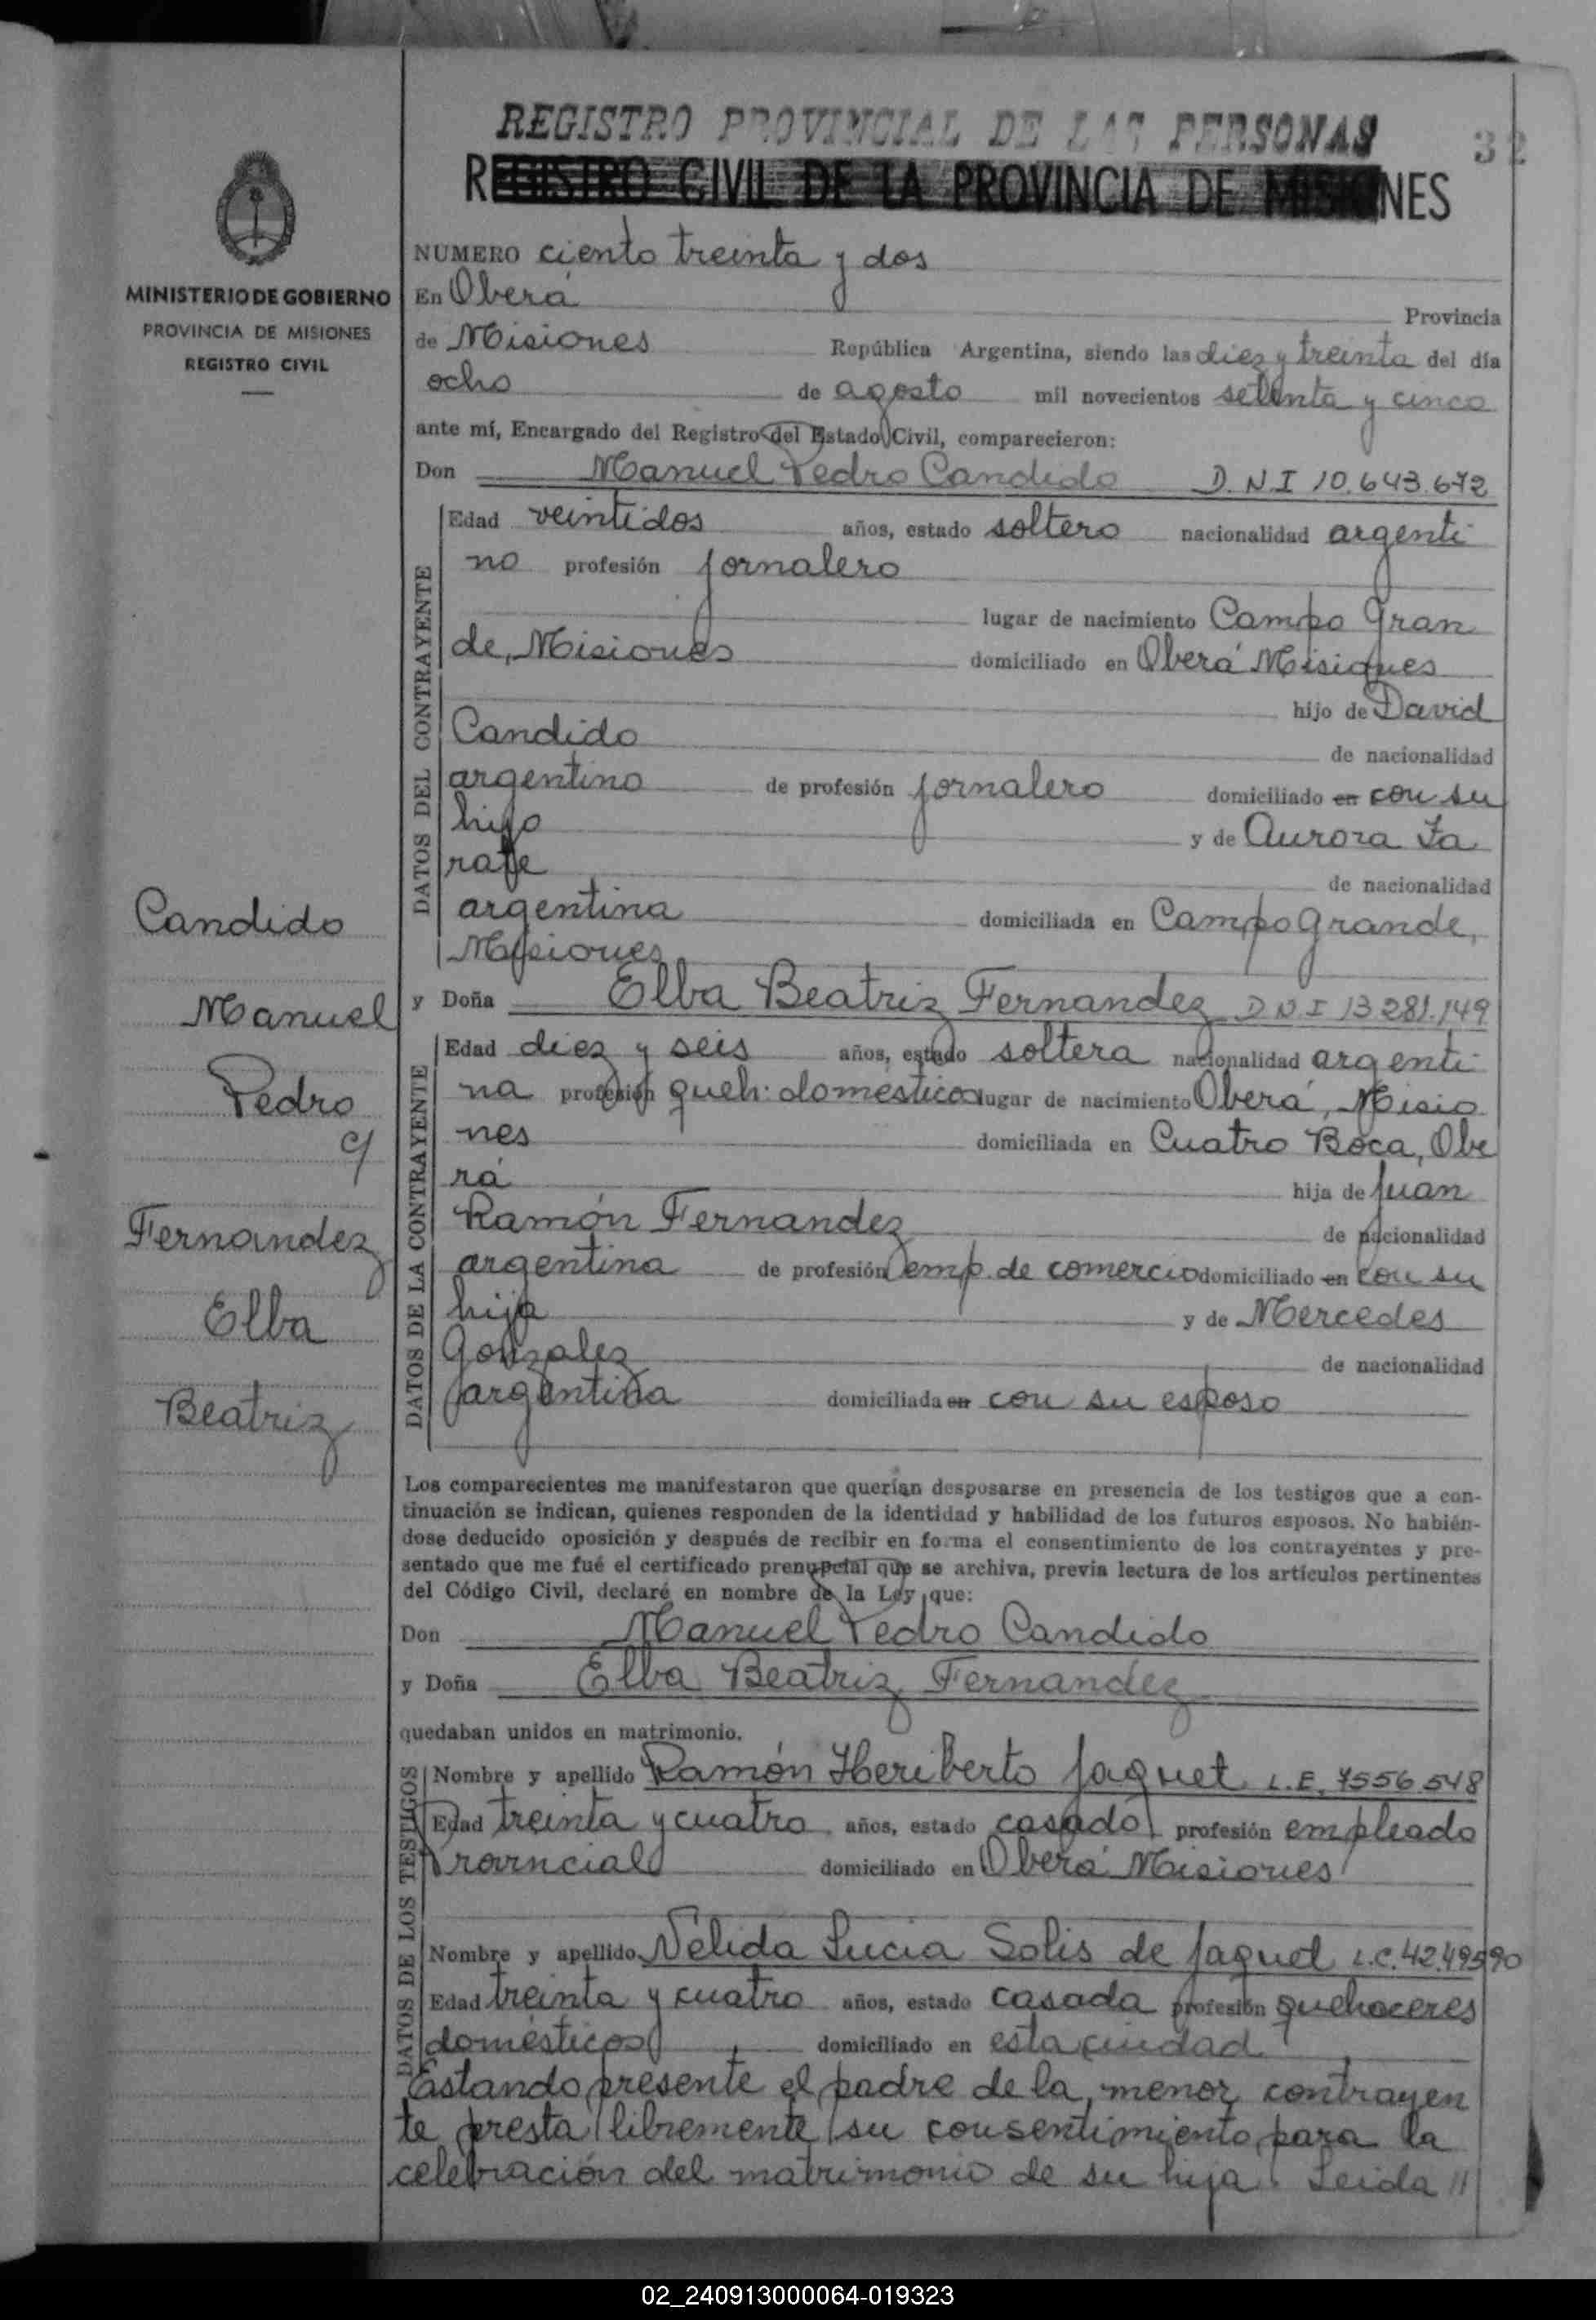 REGISTRO PROVINCIAL DE LAS PERSONAS
32
REGISTRO CIVIL DE LA PROVINCIA DE MISIONES
MINISTERIO DE GOBIERNO
PROVINCIA DE MISIONES
REGISTRO CIVIL
NUMERO ciento treinta y dos
En Oberá Provincia
de Misiones República Argentina, siendo las diez y treinta del día
ocho de agosto mil novecientos setenta y cinco
ante mí, Encargado del Registro del Estado Civil, comparecieron:
Don Manuel Pedro Candido D.N.I 10.643.672
DATOS DEL CONTRAYENTE
Edad veintidos años, estado soltero nacionalidad argenti
no profesión jornalero
lugar de nacimiento Campo Gran
de, Misiones domiciliado en Oberá Misiones
hijo de David
Candido de nacionalidad
argentino de profesión jornalero domiciliado en con su
hijo y de Aurora
de nacionalidad
argentina domiciliada en Campo Grande,
Misiones
Candido
Manuel
Pedro
c/
Fernandez
Elba
Beatriz
y Doña Elba Beatriz Fernandez D N I 13 281.149
DATOS DE LA CONTRAYENTE
Edad diez y seis años, estado soltera nacionalidad argenti
na profesión queh: domesticos lugar de nacimiento Oberá, Misio
nes domiciliada en Cuatro Boca, Obe
rá hija de Juan
Ramón Fernandez de nacionalidad
argentina de profesión emp. de comercio domiciliado en con su
hija y de Mercedes
Gonzalez de nacionalidad
argentina domiciliada en con su esposo
Los comparecientes me manifestaron que querían desposarse en presencia de los testigos que a con-
tinuación se indican, quienes responden de la identidad y habilidad de los futuros esposos. No habién-
dose deducido oposición y después de recibir en forma el consentimiento de los contrayentes y pre-
sentado que me fué el certificado prenupcial que se archiva, previa lectura de los artículos pertinentes
del Código Civil, declaré en nombre de la Ley que:
Don Manuel Pedro Candido
y Doña Elba Beatriz Fernandez
quedaban unidos en matrimonio.
DATOS DE LOS TESTIGOS
Nombre y apellido Ramón Heriberto Jaquet L.E. 7556.548
Edad treinta y cuatro años, estado casado profesión empleado
Provincial domiciliado en Oberá Misiones
Nombre y apellido Nelida Lucia Solis de Jaquet L.C. 4249590
Edad treinta y cuatro años, estado casada profesión quehaceres
domésticos domiciliado en esta ciudad
Estando presente el padre de la menor contrayen
te presta libremente su consentimiento para la
celebración del matrimonio de su hija. Leida //
02_240913000064-019323